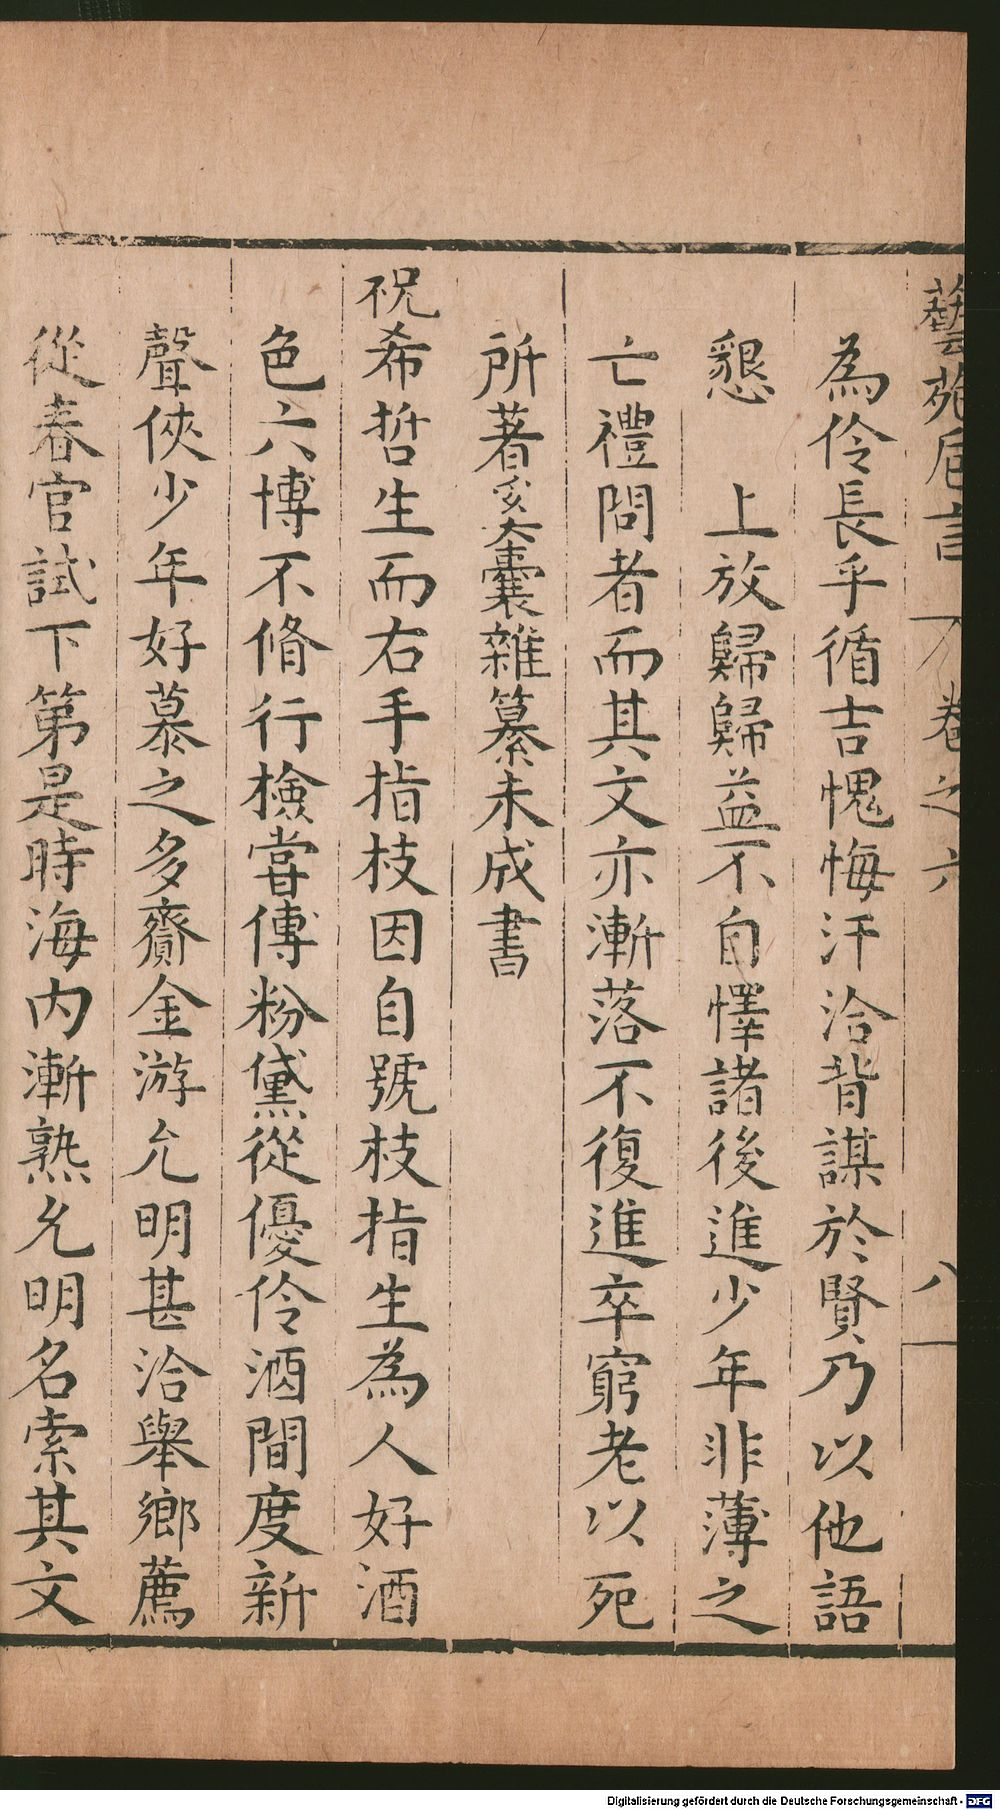 藝苑巵言 卷之六 八
為伶長乎循吉愧悔汗洽背謀於賢乃以他語
懇 上放歸歸益不自懌諸後進少年非薄之
亡禮問者而其文亦漸落不復進卒窮老以死
所著奚囊雜纂未成書
祝希哲生而右手指枝因自號枝指生為人好酒
色六博不脩行檢嘗傅粉黛從優伶酒間度新
聲俠少年好慕之多齎金游允明甚洽舉鄉薦
從春官試下第是時海內漸熟允明名索其文
Digitalisierung gefördert durch die Deutsche Forschungsgemeinschaft - DFG